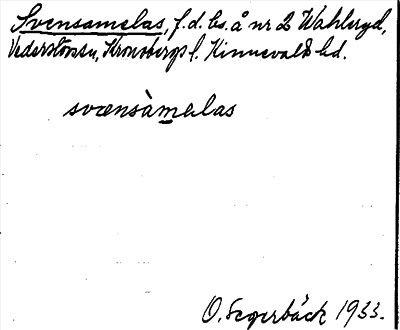 Svensamelas, f.d. bs. å nr 2 Wahleryd,
Vederslövs sn, Kronobergs l. Kinnevalds hd.
svænsàmelas
O. Segerbäck 1933.